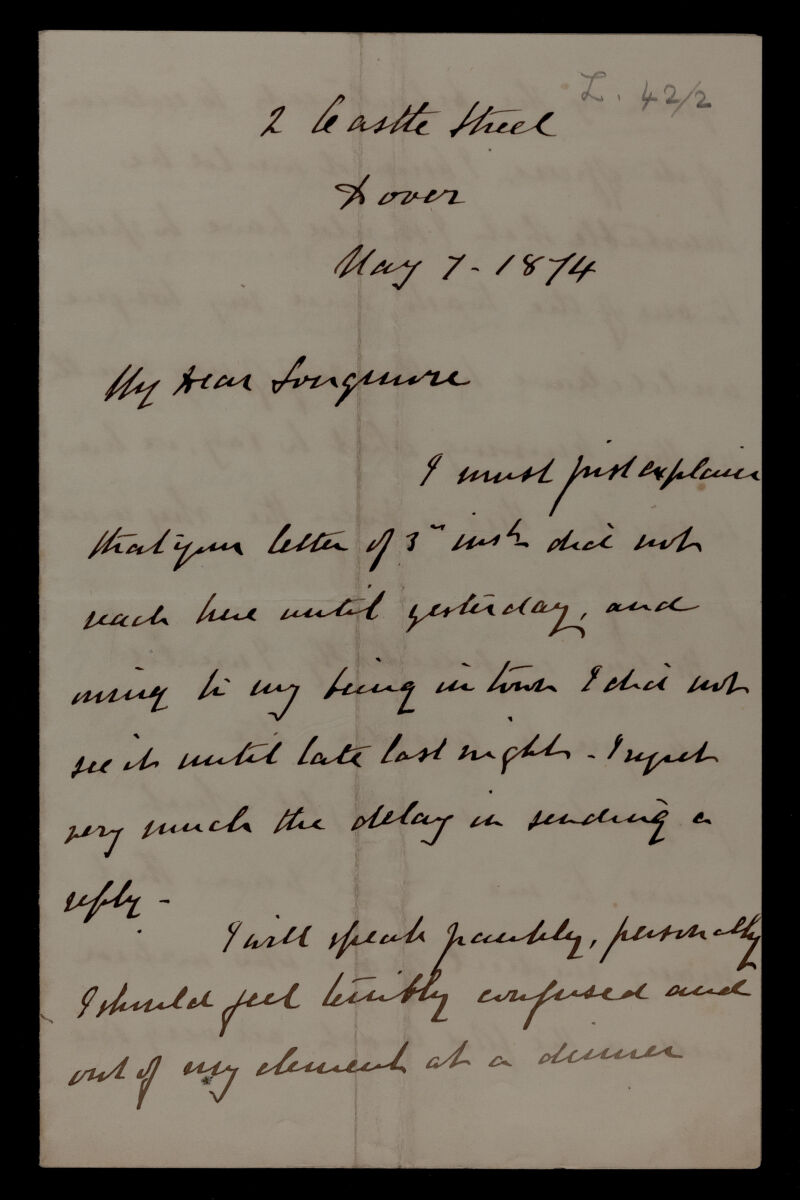 L. 42/2
2 Castle Street
Dover
May 7 - 1874
My Dear Longmore
I must first explain
that your letter of 3rd inst did not
reach here until yesterday, and
owing to my being in town I did not
see it until late last night - I regret
very much the delay in sending a
reply -
I will speak frankly, personally
I should feel terribly confused and
out of my element at a dinner